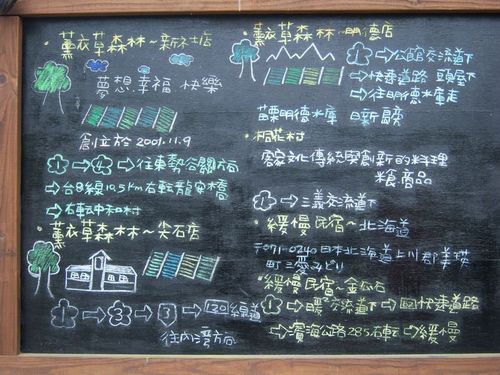 ·薰衣草森林~新社店
夢想.幸福.快樂
創立於2001.11.9
1⇨4⇨往東勢谷關方向
⇨台8線10.5km右転龍安橋
⇨右転中和村
·薰衣草森林~尖石店
1⇨3⇨3⇨120線道
往內灣方向
·薰衣草森林~明德店
1⇨公館交流道下
⇨快速道路 頭屋下
⇨往明德水庫走
苗栗明德水庫 日新
·桐花村
客家文化傳統與創新的料理
商品
1⇨三義交流道下
·緩慢民宿~北海道
〒071-0240日本北海道上川郡美瑛
町三愛みどり
·緩慢民宿~金瓜石
1⇨暖交流道下⇨快速道路
⇨濱海公路285右転⇨緩慢